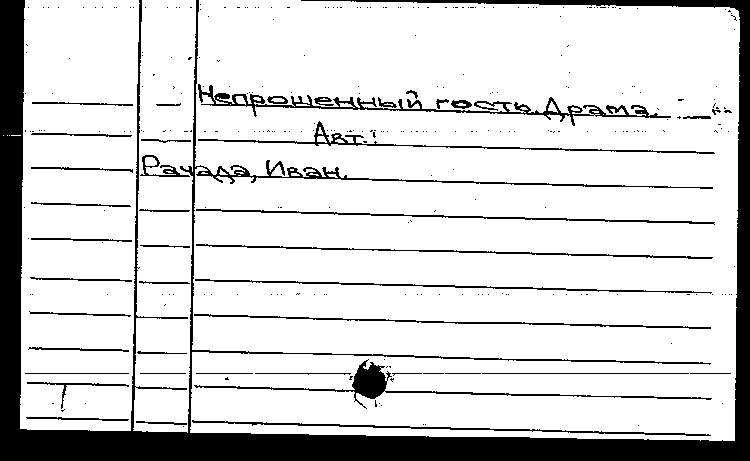 Непрошенный гость. Драма.
Авт.:
Рачада, Иван.